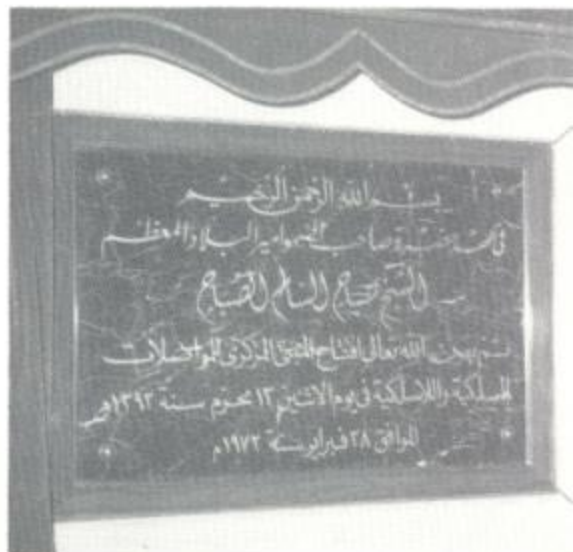 بسم الله الرحمن الرحيم
في عهد حضرة صاحب السمو امير البلاد المعظم
الشيخ صباح السالم الصباح
تم بعون الله تعالى افتتاح المبنى المركزي للمواصلات
السلكية واللاسلكية في يوم الاثنين ١٣ محرم سنة ١٣٩٢ هـ
الموافق ٢٨ فبراير سنة ١٩٧٢ م